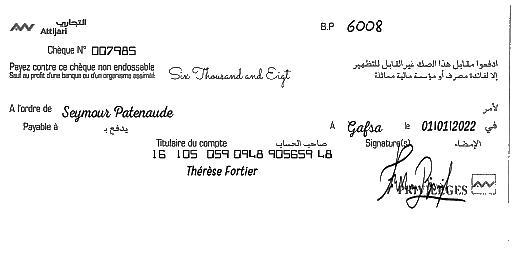 التجاري
Attijari
B.P 6008
Chèque N° 007985
Payez contre ce chèque non endossable
Sauf au profit d'une banque ou d'un organisme assimilé
Six Thousand and Eigt
ادفعوا مقابل هذا الصك غير القابل للتظهير
إلا لفائدة مصرف أو مؤسسة مالية مماثلة
A l'ordre de Seymour Patenaude لأمر
Payable à يدفع بـ A Gafsa le 01/01/2022 في
Titulaire du compte صاحب الحساب Signature(s) الإمضاء
16 105 059 0948 905659 48
Thérèse Fortier
PRIVILEGES